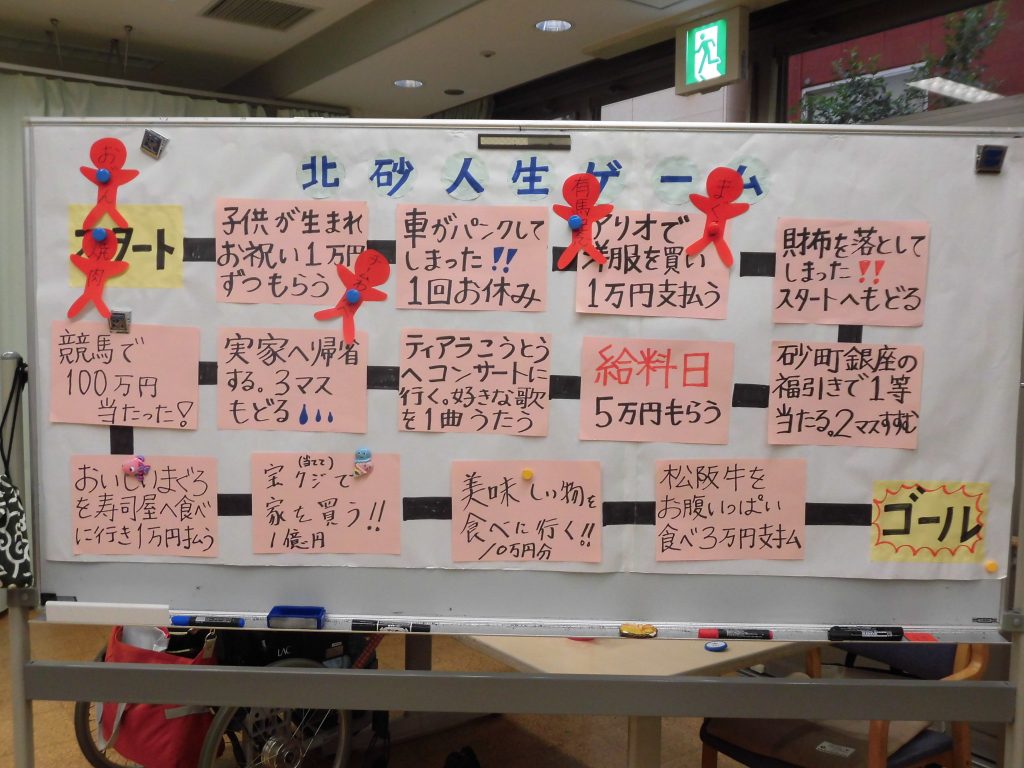 北砂人生ゲーム
スタート
子供が生まれ
お祝い1万円
ずつもらう
車がパンクして
しまった!!
1回お休み
アリオで
洋服を買い
1万円支払う
財布を落として
しまった!!
スタートへもどる
競馬で
100万円
当たった!
実家へ帰省
する。3マス
もどる
ティアラこうとう
へコンサートに
行く。好きな歌
を1曲うたう
給料日
5万円もらう
砂町銀座の
福引きで1等
当たる。2マスすすむ
おいしいまぐろ
を寿司屋へ食べ
に行き1万円払う
(当てて)
宝クジで
家を買う!!
1億円
美味しい物を
食べに行く!!
10万円分
松阪牛を
お腹いっぱい
食べ3万円支払ム
ゴール
焼肉
有馬
まぐ
LAC